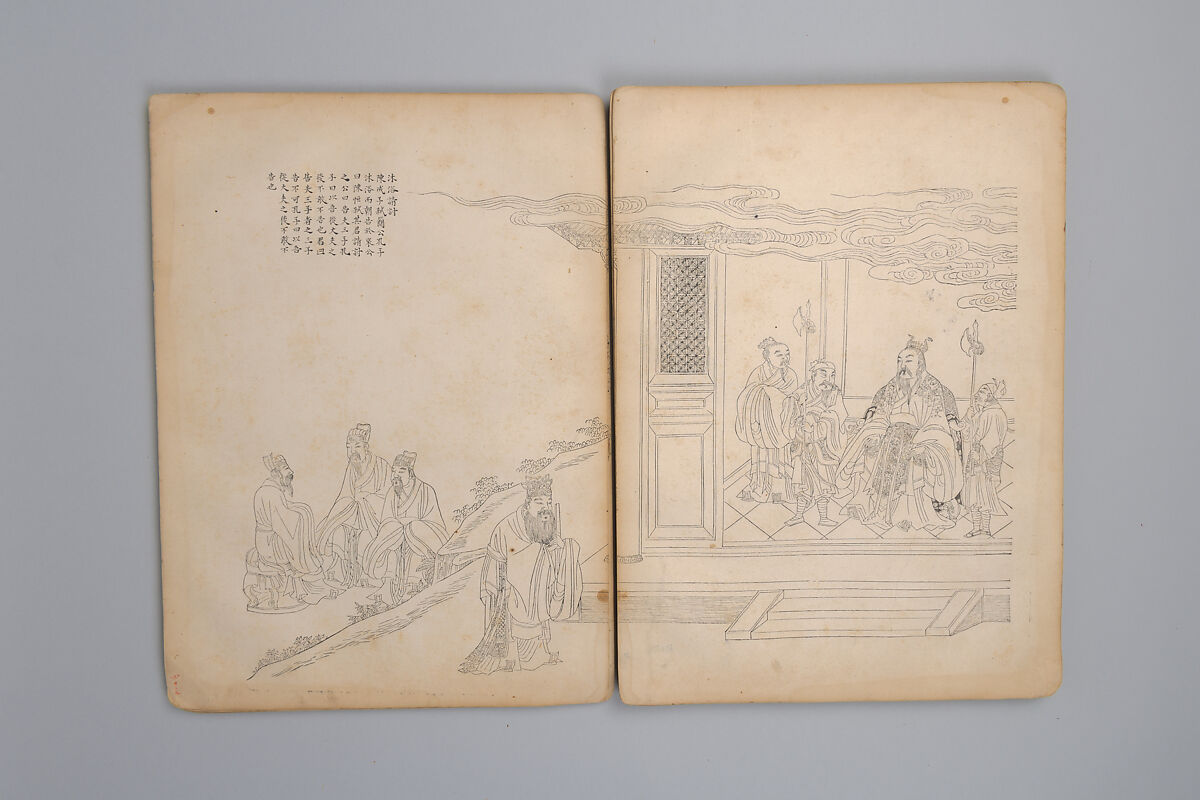 沐浴請討
陳成子弑簡公孔子
沐浴而朝告於哀公
曰陳恒弑其君請討
之公曰告夫三子孔
子曰以吾從大夫之
後不敢不告也君曰
告夫三子者之三子
告不可孔子曰以吾
從大夫之後不敢不
告也